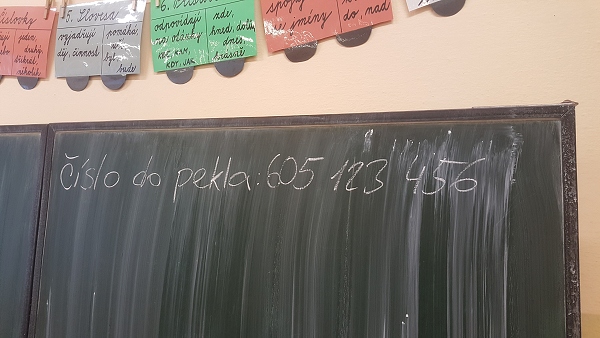 číslovky
jeden,
druhý,
několik
5. Slovesa
vyjadřují
děj, činnost
pomáhá,
byl,
bude
6.
odpovídají
na otázky
KDE, KAM,
KDY, JAK
zde,
hned, dole,
dnes,
krásně
spojují
jmény
do, nad
číslo do pekla: 605 123 456